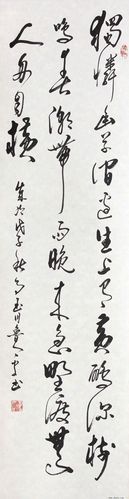 獨憐幽草澗邊生上有黃鸝深樹
鳴春潮帶雨晚來急野渡無
人舟自橫
歲次戊子秋